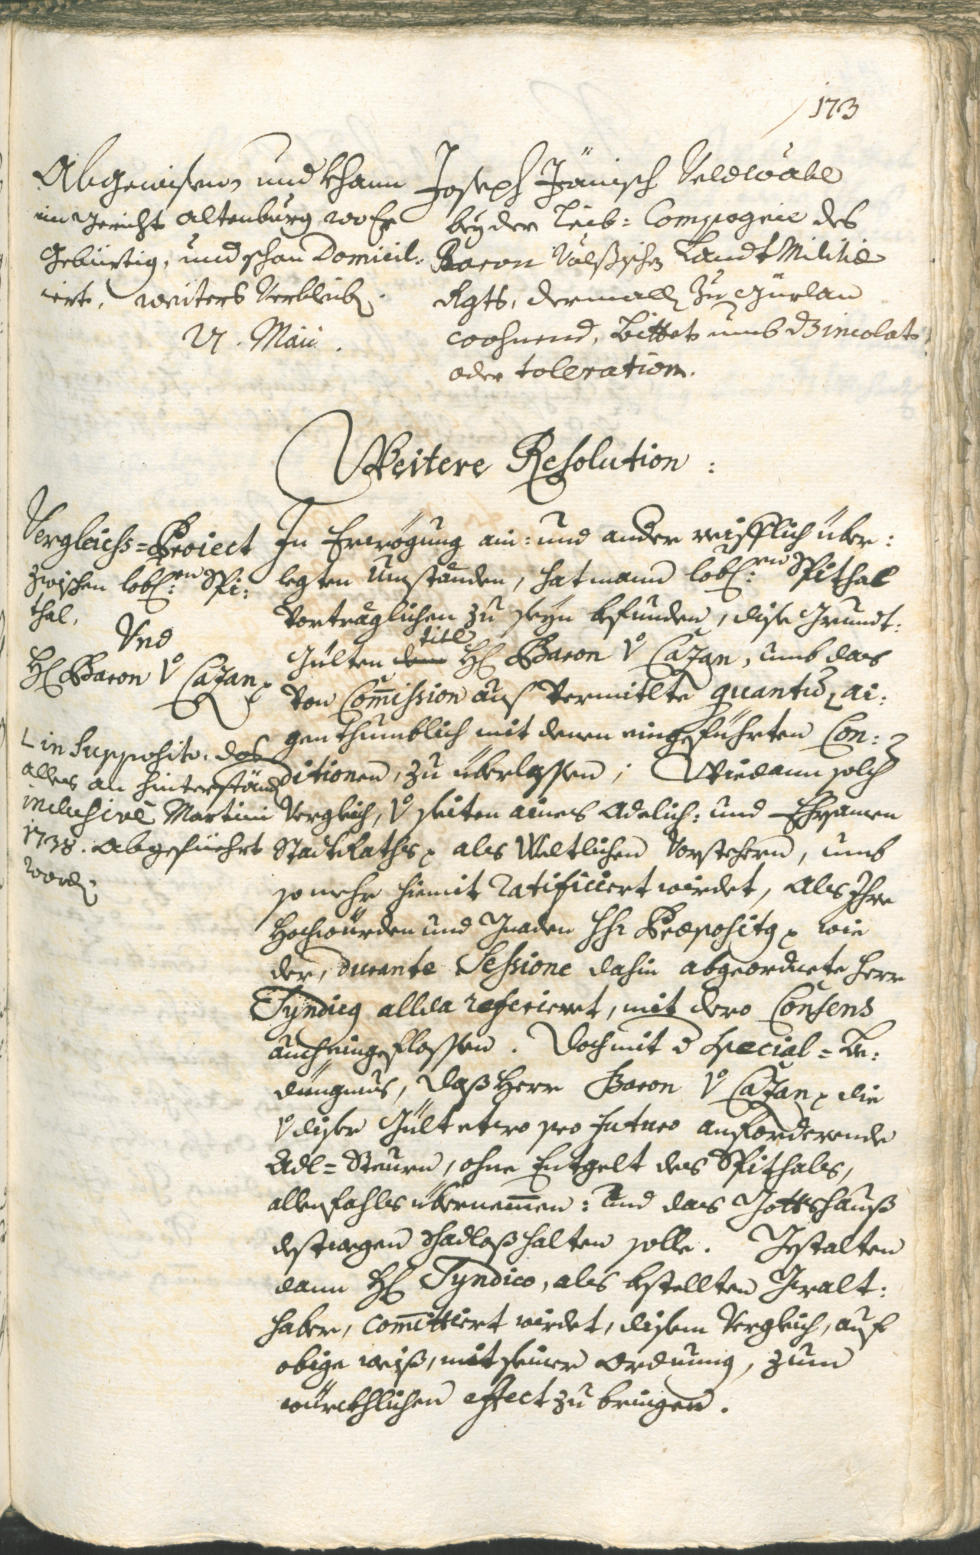 173
Abgewisen, und khann
im Gericht Altenburg wo Er
Gebürtig, und schon Domicil:
iert, weiters verbleiben.
27. Maii.
Joseph Jänisch Veldwäbl
bey der Leib: Compagnie des
Baron Völsischen Landt Militie
Rgts, dermallen zu Gürlan
wohnend, bittet umb d'Incolat
oder toleration.
Weitere Resolution:
Vergleichs=Proiect
zwischen lobl: en Spi:
thal,
Vnd
H: Baron v Cazan
in Supposito, das
alles an hinterständ
inclusivè Martini
1738. abgeführt
worden.
In Erwögung ain: und ander reifflich über:
legten Umbständen, hat mann lobl: en Spithal
vorträglichen zu seyn befunden, dise Grundt:
titl
Gülten dem H: Baron v Cazan, umb das
von Commission aus vermitlte quantum ai:
genthumblich mit denen eingeführten Con:
ditionen, zu überlassen; Wie dann solch
Vergleich, v seiten aines Adelich: und Ehrsamen
StadtRaths als Weltlichen Vorstehern, umb
so mehr hiemit ratificiert wirdet, als Ihre
Hochwürden und Gnaden HH: Præpositus wie
der, durante Sessione dahin abgeordnete Herr
Syndicus allda referieret, mit dero Consens
auch eingeflossen. Doch mit d special=Be:
düngnus, daß Herr Baron v Cazan die
v diser Gült etwo pro futuro anforderende
Adl=Steurn, ohne Entgelt des Spithals,
allenfahls übernemmen: und das Gottshauß
destwegen schadloß halten solle. Gestalten
dann H: Syndico, als bestellten Gwalt:
haber, committiert wirdet, disem Vergleich, auf
obige weiß, mit seiner Ordnung, zum
würckhlichen effect zu bringen.